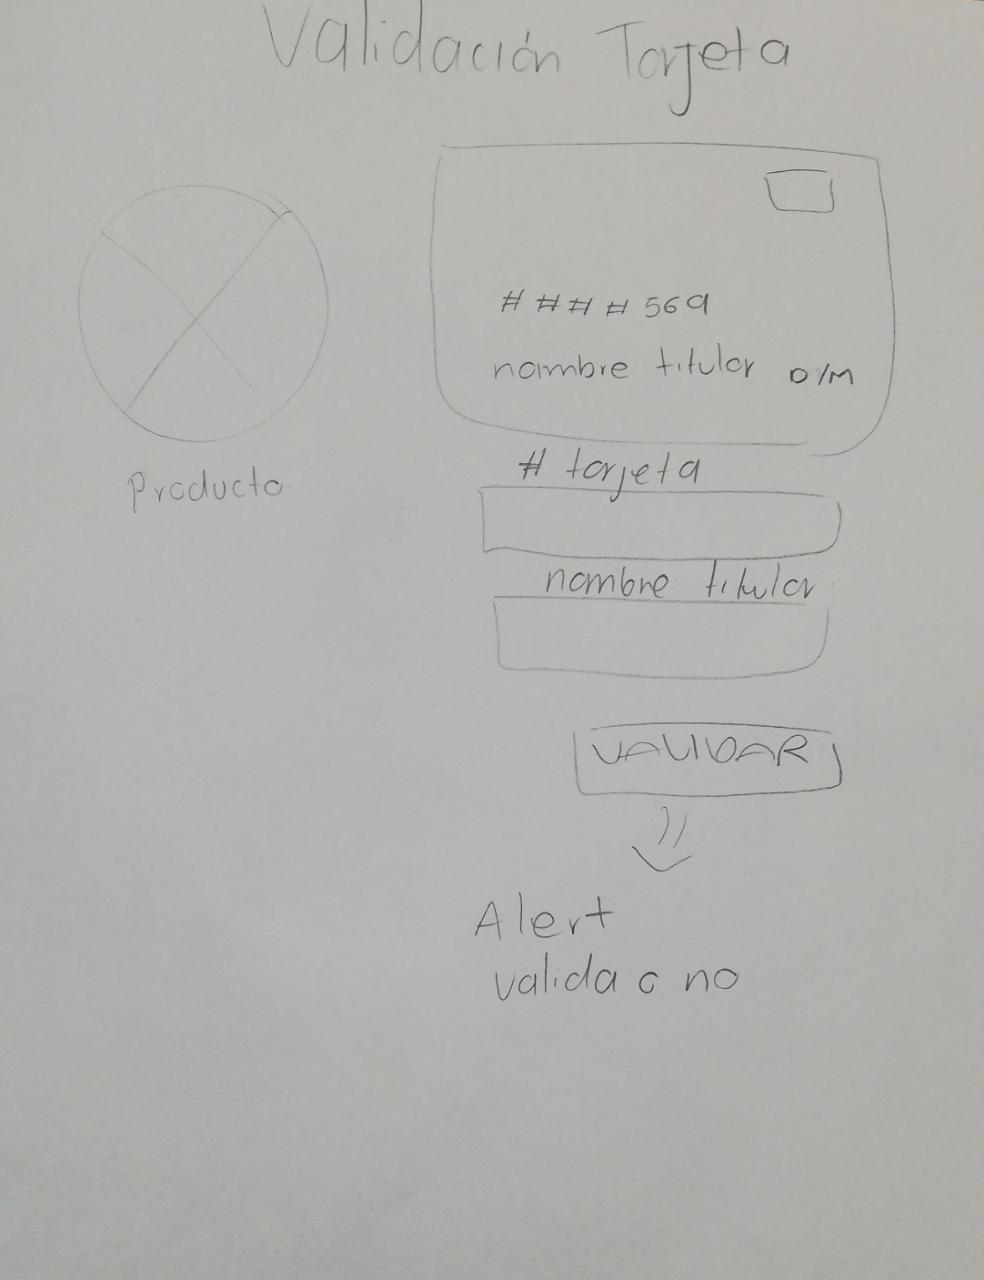 Validación Tarjeta
# # # # 569
nombre titular D/M
Producto
# tarjeta
nombre titular
VALIDAR
Alert
valida o no